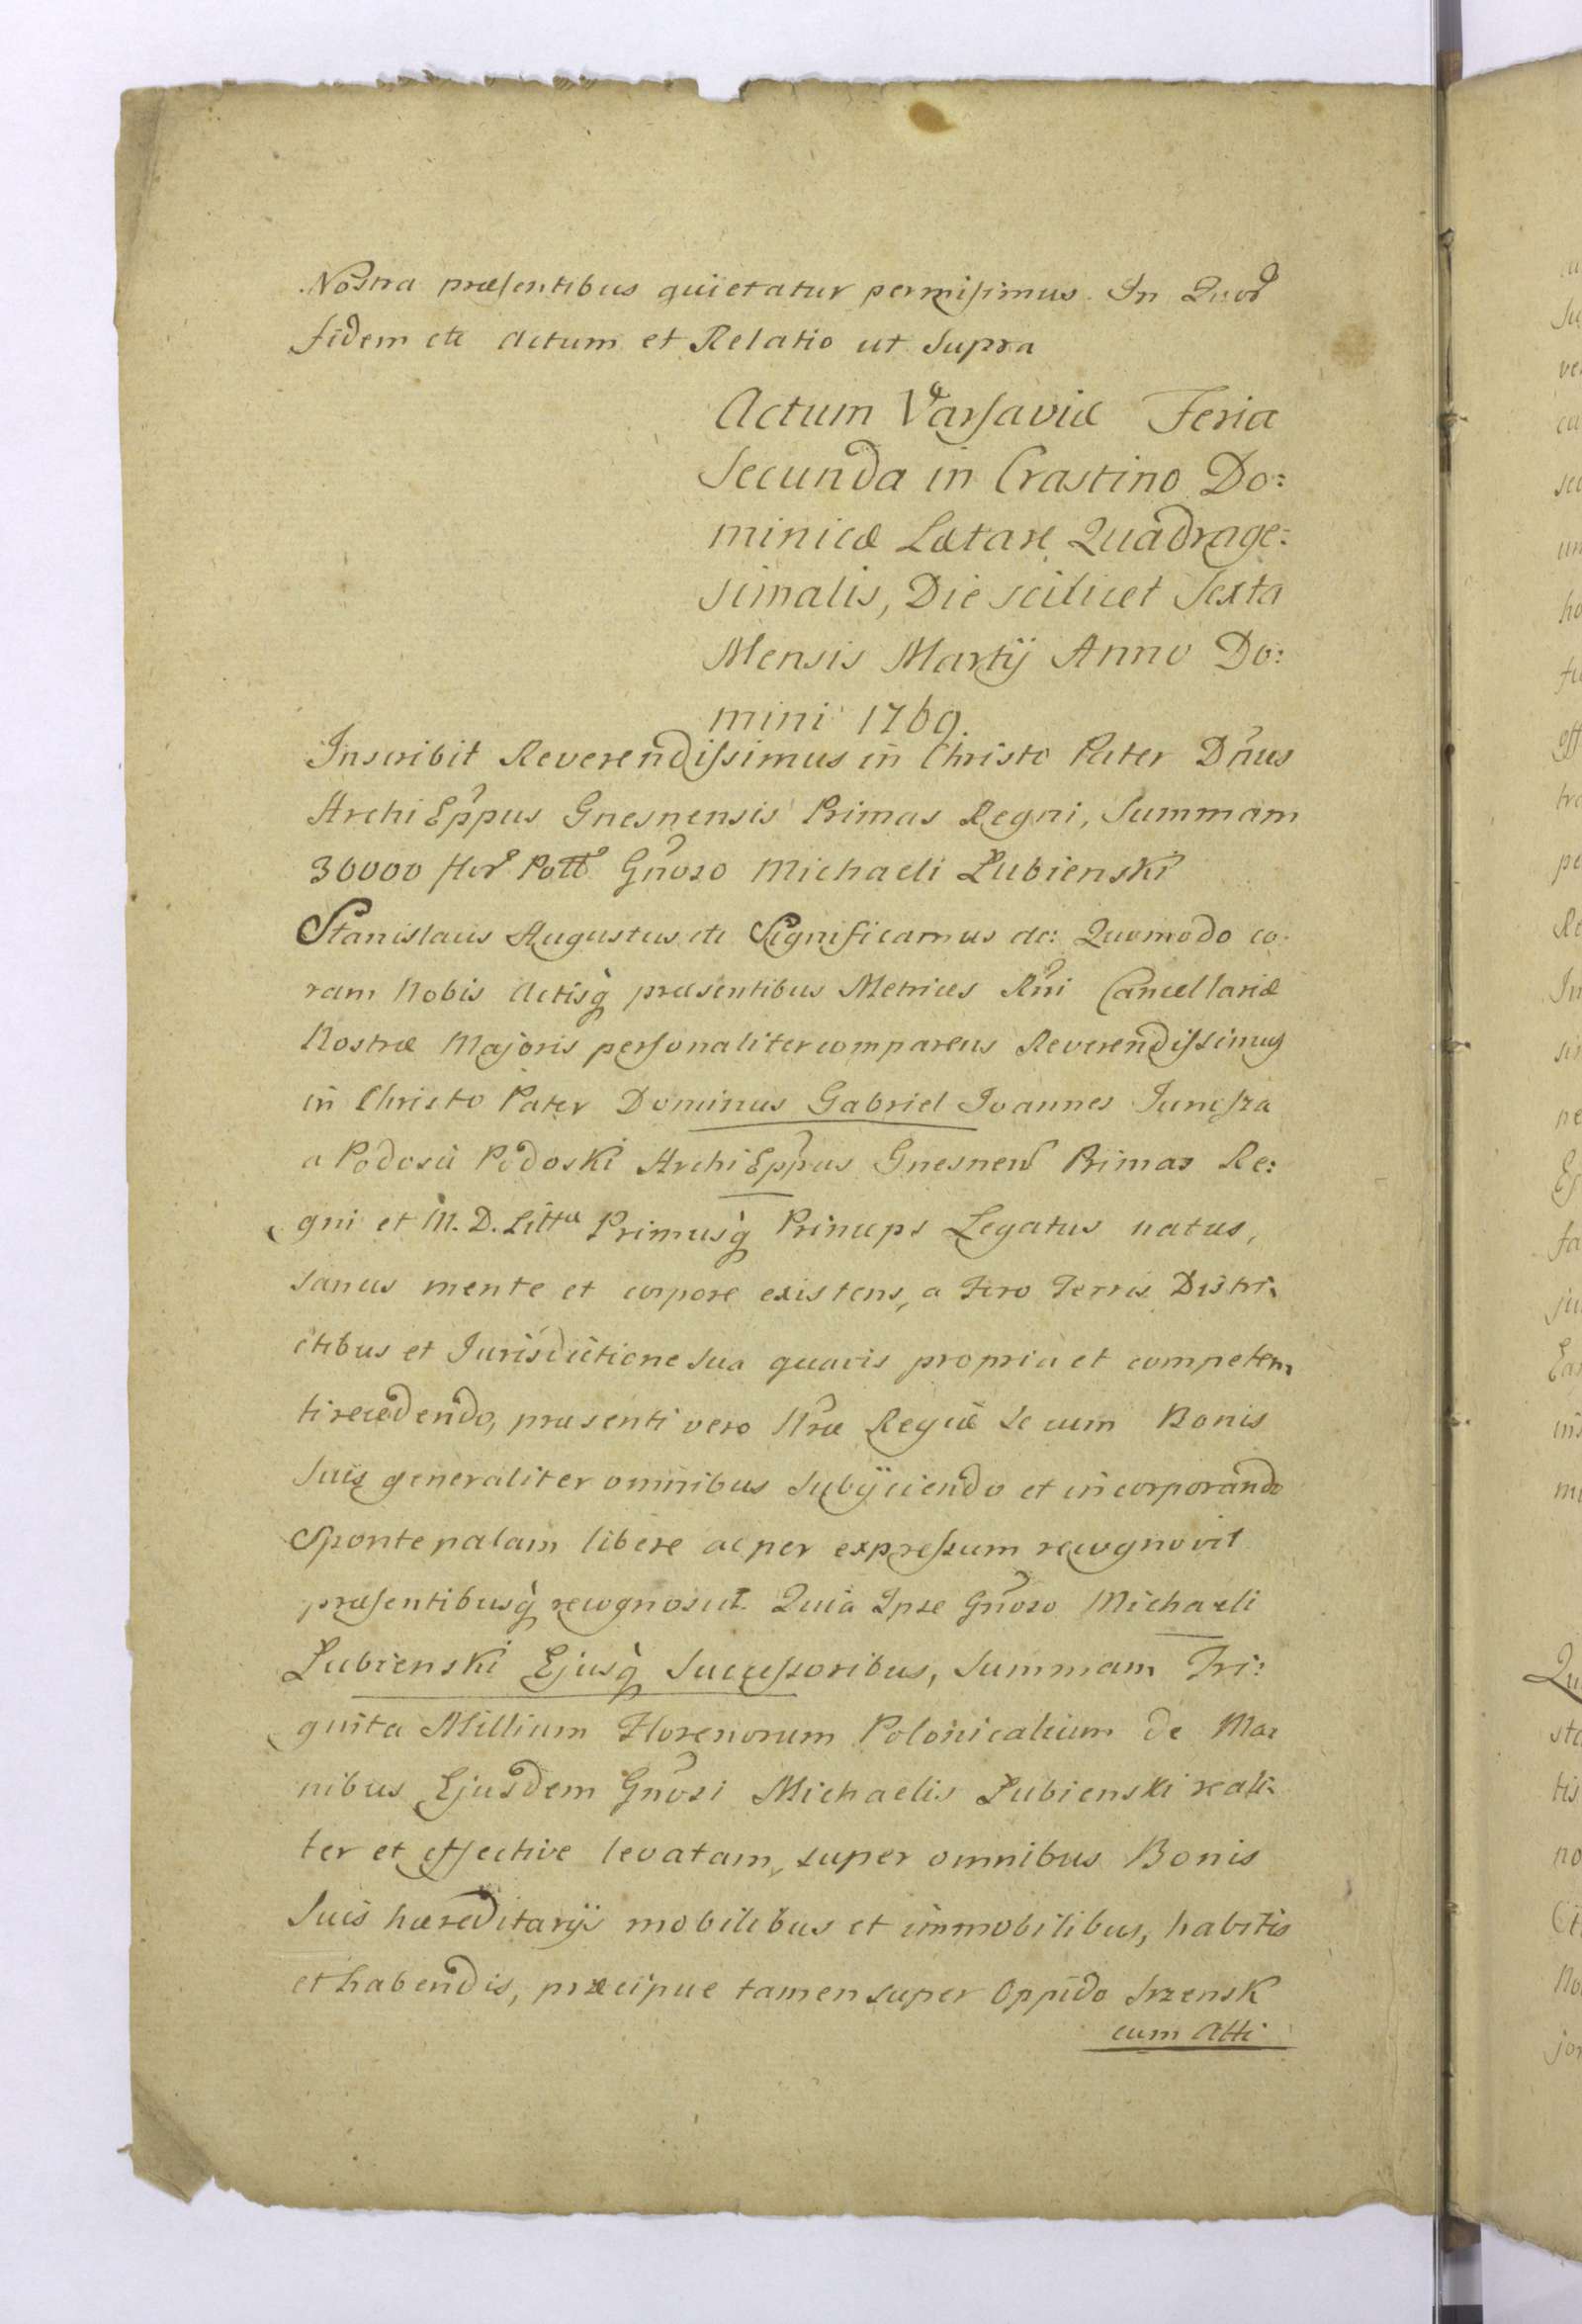 Nostra præsentibus quietatur permisimus. In Quor
fidem etc Actum et Relatio ut Supra
Actum Varsaviæ Feria
Secunda in Crastino Do:
minicæ Lætare Quadrage:
simalis, Die scilicet Sexta
Mensis Martij Anno Do:
mini 1769.
Inscribit Reverendissimus in Christo Pater Dnus
Archi Eppus Gnesnensis Primas Regni, Summam
30000 flor Poll Gnoso Michaeli Łubienski
Stanislaus Augustus etc Significamus etc: Quomodo co:
ram Nobis Actisq præsentibus Metrices Rni Cancellariæ
Nostræ Majoris personaliter comparens Reverendissimus
in Christo Pater Dominus Gabriel Joannes Junosza
a Podosii Podoski Archi Eppus Gnesnen Primas Re:
gni et M. D. Littæ Primusq Princeps Legatus natus,
sanus mente et corpore existens, a Foro Terris Distri:
ctibus et Jurisdictione sua quavis propria et competen:
ti recedendo, præsenti vero Nræ Regiæ se cum Bonis
suis generaliter omnibus subijciendo et incorporando
Sponte palam libere ac per expressum recognovit
præsentibusq recognoscit. Quia Ipse Gnoso Michaeli
Łubienski Ejusq Successoribus, Summam Tri:
ginta Millium Florenorum Polonicalium de Ma:
nibus Ejusdem Gnosi Michaelis Łubienski reali:
ter et effective levatam, super omnibus Bonis
Suis hæreditarijs mobilibus et immobilibus, habitis
et habendis, præcipue tamen super Oppido Srzensk
cum Atti